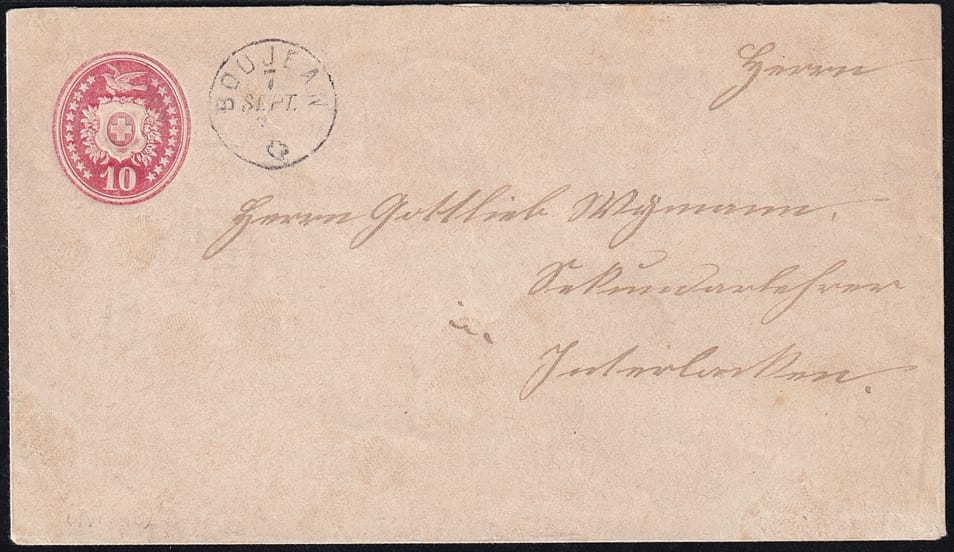 10
BOUJEAN
7
SEPT.
Herrn
Herrn Gottlieb Wymann.
Sekundarlehrer
in
Interlacken.